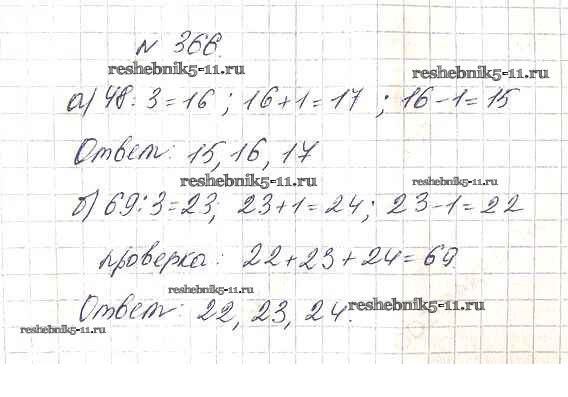 № 366.
reshebnik5-11.ru reshebnik5-11.ru
а) 48 : 3 = 16 ; 16 + 1 = 17 ; 16 - 1 = 15
Ответ: 15, 16, 17
reshebnik5-11.ru reshebnik5-11.ru
б) 69 : 3 = 23; 23 + 1 = 24; 23 - 1 = 22
проверка: 22 + 23 + 24 = 69.
reshebnik5-11.ru
Ответ: 22, 23, 24.
reshebnik5-11.ru
reshebnik5-11.ru